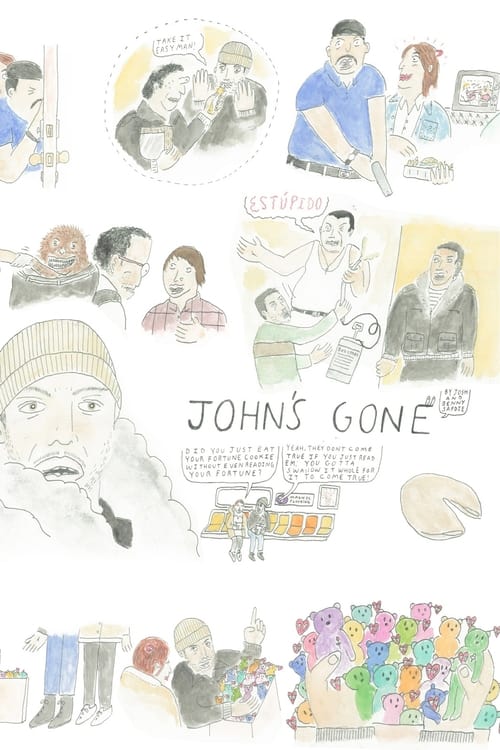 TAKE IT
EASY MAN!
¡ESTÚPIDO!
JOHN'S GONE
BY JOSH
AND
BENNY
SAFDIE
DID YOU JUST EAT
YOUR FORTUNE COOKIE
WITHOUT EVEN READING
YOUR FORTUNE?
YEAH, THEY DONT COME
TRUE IF YOU JUST READ
EM. YOU GOTTA
SWALLOW IT WHOLE FOR
IT TO COME TRUE!
PLUMBING